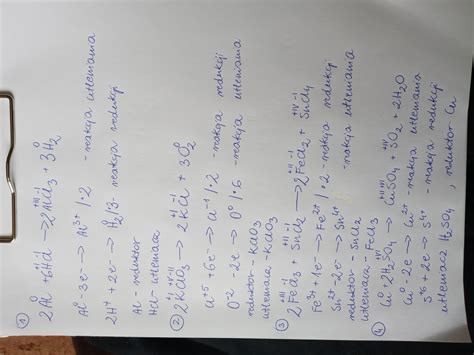 ①
0 +I -I +III -I 0
2Al + 6HCl → 2AlCl₃ + 3H₂
Al⁰ - 3e⁻ → Al³⁺ /·2 - reakcja utleniania
2H⁺ + 2e⁻ → H₂⁰ /·3 - reakcja redukcji
Al - reduktor
HCl - utleniacz
② 2KClO₃ → 2KCl + 3O₂
Cl⁺⁵ + 6e⁻ → Cl⁻¹ /·2 - reakcja redukcji
O⁻² - 2e → O⁰ /·6 - reakcja utleniania
reduktor - KClO₃
utleniacz - KClO₃
+III -I +II -I +II -I +IV -I
③ 2FeCl₃ + SnCl₂ → 2FeCl₂ + SnCl₄
Fe³⁺ + 1e⁻ → Fe²⁺ /·2 - reakcja redukcji
Sn²⁺ - 2e → Sn⁴⁺ - reakcja utleniania
reduktor - SnCl₂
utleniacz - FeCl₃
④ Cu + 2H₂SO₄ → CuSO₄ + SO₂ + 2H₂O
Cu⁰ - 2e → Cu²⁺ - reakcja utleniania
S⁺⁶ + 2e → S⁴⁺ - reakcja redukcji
utleniacz H₂SO₄ , reduktor Cu